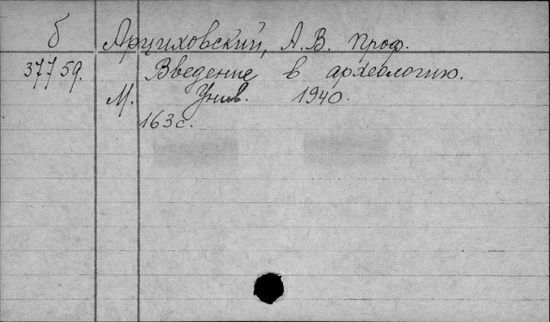 б Арциховский, А.В. проф.
37759. Введение в археологию.
М. Унив. 1940.
163с.